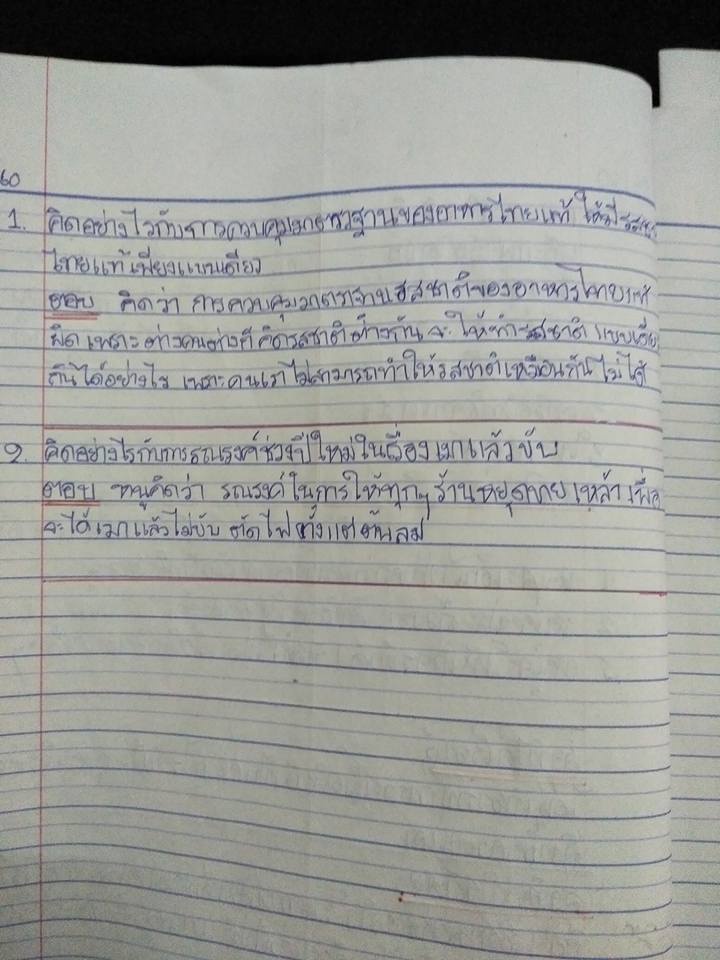 60
1. คิดอย่างไรกับการควบคุมมาตราฐานของอาหารไทยแท้ ให้มีรสชาติ
ไทยแท้เพียงแบบเดียว
ตอบ คิดว่า การควบคุมมาตราฐานรสชาติของอาหารไทยแท้
ผิด เพราะต่างคนต่างก็คิดรสชาติต่างกัน จะให้ทำรสชาติแบบเดียว
กันได้อย่างไร เพราะคนเราไม่สามารถทำให้รสชาติเหมือนกันไม่ได้
2. คิดอย่างไรกับการรณรงค์ช่วงปีใหม่ในเรื่องเมาแล้วขับ
ตอบ หนูคิดว่า รณรงค์ในการให้ทุกๆร้านหยุดขายเหล้า เพื่อ
จะได้เมาแล้วไม่ขับ ตัดไฟตั้งแต่ต้นลม